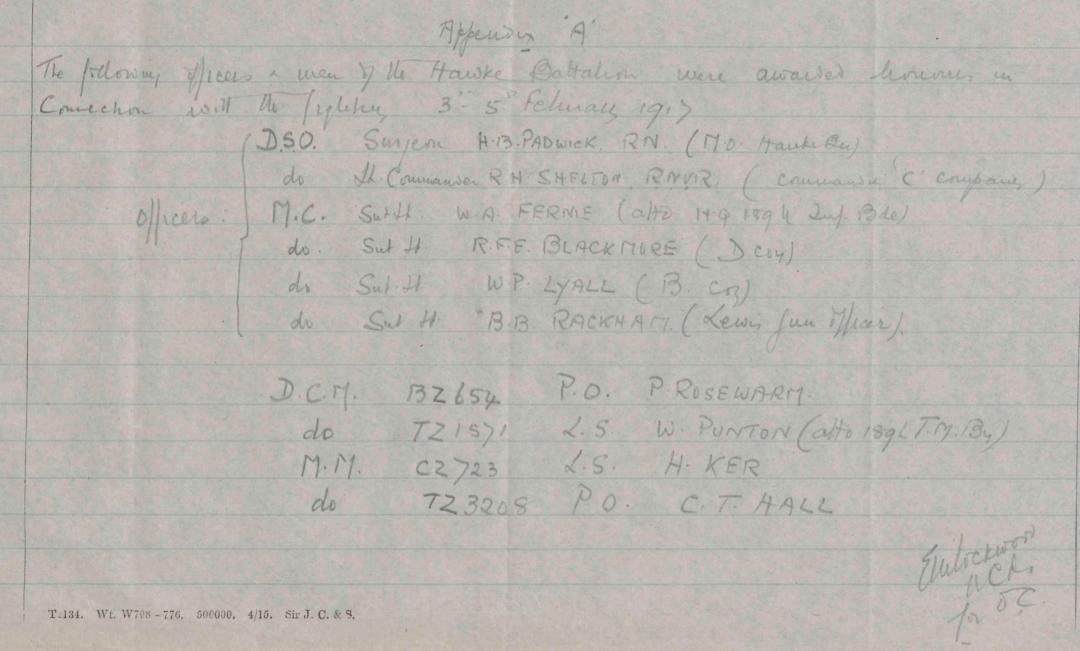 Appendix 'A'
The following officers & men of the Hawke Battalion were awarded honours in
Connection with the fighting 3rd - 5th February 1917
D.S.O. Surgeon H.B. PADWICK, RN. (M.O. Hawke Bn)
do Lt. Commander R H SHELTON, RNVR. (commandg 'C' company)
Officers: M.C. Sub Lt. W.A. FERNIE (attd H.Q 189th Inf. Bde)
do. Sub Lt R.F.E. BLACKMORE (D coy)
do Sub. Lt W P. LYALL (B. Coy)
do Sub Lt. B.B. RACKHAM. (Lewis Gun Officer).
D.C.M. BZ654 P.O. P. ROSEWARM.
do TZ1571 L.S. W. PUNTON (attd 189th T.M. By)
M.M. CZ723 L.S. H. KER
do TZ3208 P.O. C. T. HALL
Lockwood
for O.C.
T.134. Wt. W708-776. 500000. 4/15. Sir J. C. & S.